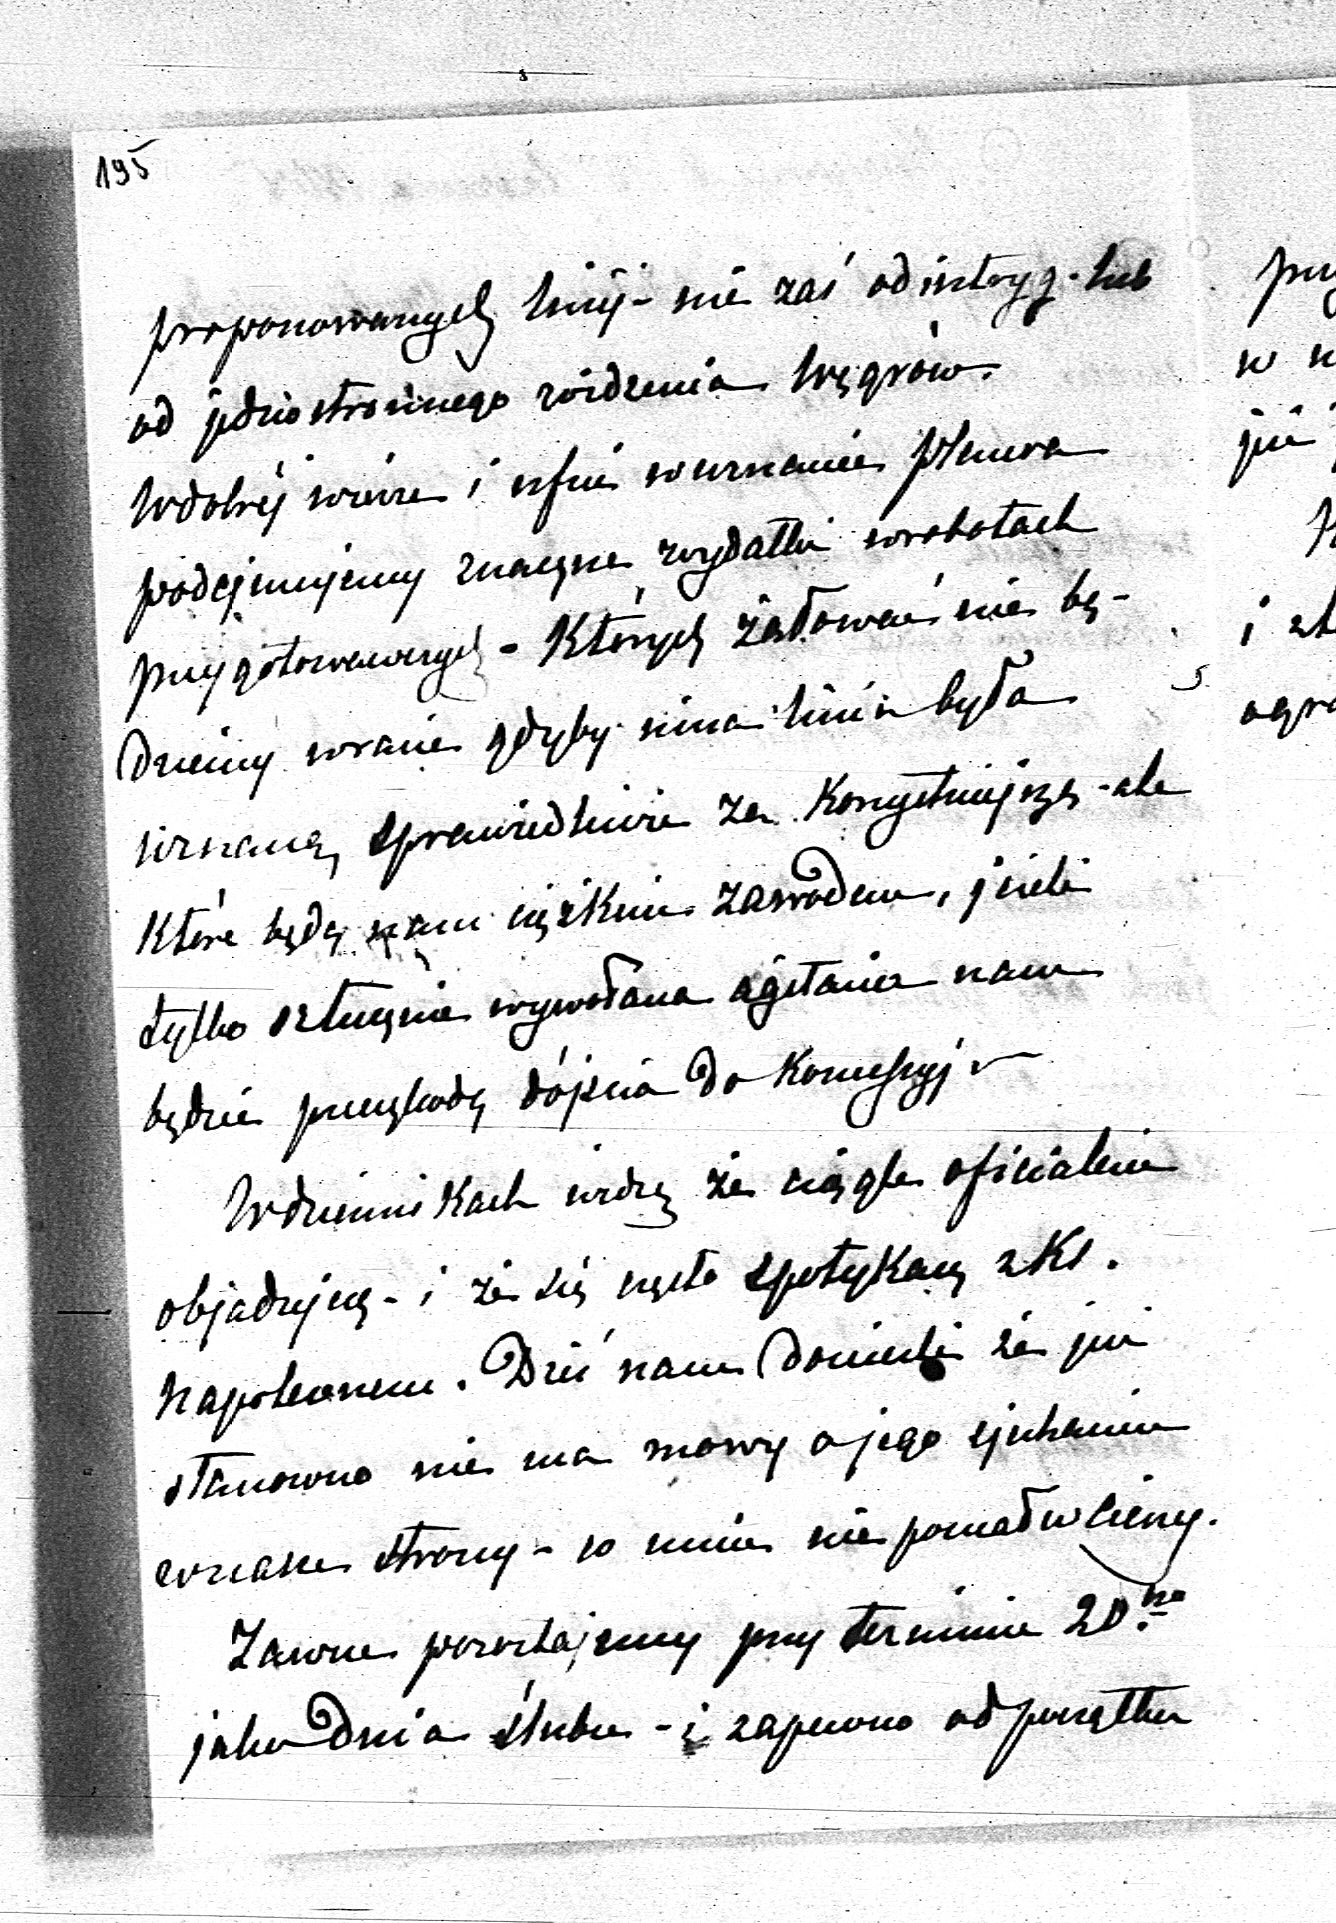 195
proponowanych linij - nie zaś od intryg - lub
od jednostronnego widzenia Węgrów.
W dobrej wierze i ufni w uznanie prawa
podejmujemy znaczne wydatki w robotach
przygotowawczych - których żałować nie bę-
dziemy w razie gdyby inna linia była
uznaną sprawiedliwie za korzystniejszą - ale
które będą nam ciężkim zawodem, jeżeli
tylko sztucznie wywołana agitacia nam
będzie przeszkodą dójścia do Koncessyj
W dziennikach widzę że ciągle oficialnie
objadujcą - i że się często spotykacą z Ks.
Napoleonem. Dziś nam donieśli że już
stanowno nie ma mowy o jego zjechaniu
w nasze strony - co mnie nie pomału cieszy.
Zawsze pozostajemy przy terminie 20.
jako dnia ślubu - i zapewno od początku
prz
w n
już
i
ogro